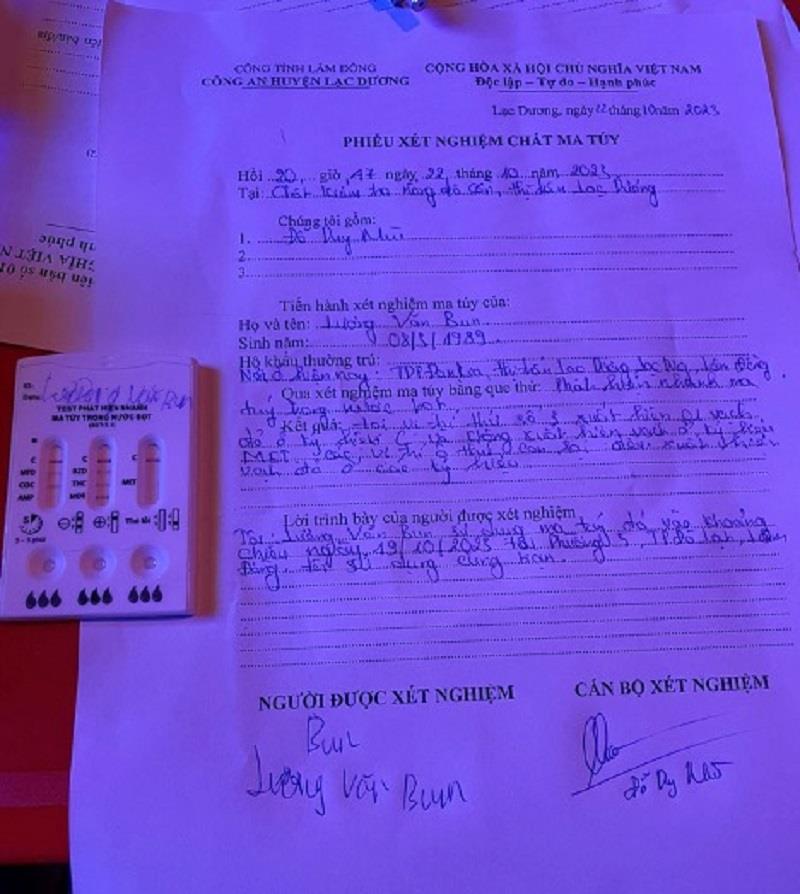 CÔNG TỈNH LÂM ĐỒNG
CÔNG AN HUYỆN LẠC DƯƠNG
CỘNG HÒA XÃ HỘI CHỦ NGHĨA VIỆT NAM
Độc lập – Tự do – Hạnh phúc
Lạc Dương, ngày 22 tháng 10 năm 2023
PHIẾU XÉT NGHIỆM CHẤT MA TÚY
Hồi 20 giờ 47 ngày 22 tháng 10 năm 2023
Tại: Chốt kiểm tra nồng độ cồn, thị trấn Lạc Dương
Chúng tôi gồm:
1. Đỗ Duy
2.
3.
Tiến hành xét nghiệm ma túy của:
Họ và tên: Lương Văn Bun
Sinh năm: 08/5/1989
Hộ khẩu thường trú:
Nơi ở hiện nay: TDP thị trấn Lạc Dương, Lạc Dương, Lâm Đồng
Qua xét nghiệm ma túy bằng que thử: Phát hiện nhanh ma
túy trong nước bọt
Kết quả: Tại vị trí thử số 3 xuất hiện 01 vạch
đỏ ở ký hiệu C và không xuất hiện vạch ở ký hiệu
MET, các vị trí thử còn lại đều xuất hiện
vạch đỏ ở các ký hiệu
Lời trình bày của người được xét nghiệm
Tôi: Lương Văn Bun sử dụng ma túy đá vào khoảng
chiều ngày 19/10/2023 tại Phường 5, TP Đà Lạt, Lâm
Đồng, tôi sử dụng cùng bạn.
NGƯỜI ĐƯỢC XÉT NGHIỆM
CÁN BỘ XÉT NGHIỆM
Bun
Lương Văn Bun
Đỗ Duy
ID:
Date:
Lương Văn Bun
TEST PHÁT HIỆN NHANH
MA TÚY TRONG NƯỚC BỌT
C
C
C
BZD
COC
THC
MET
AMP
MOR
3 - 5 phút